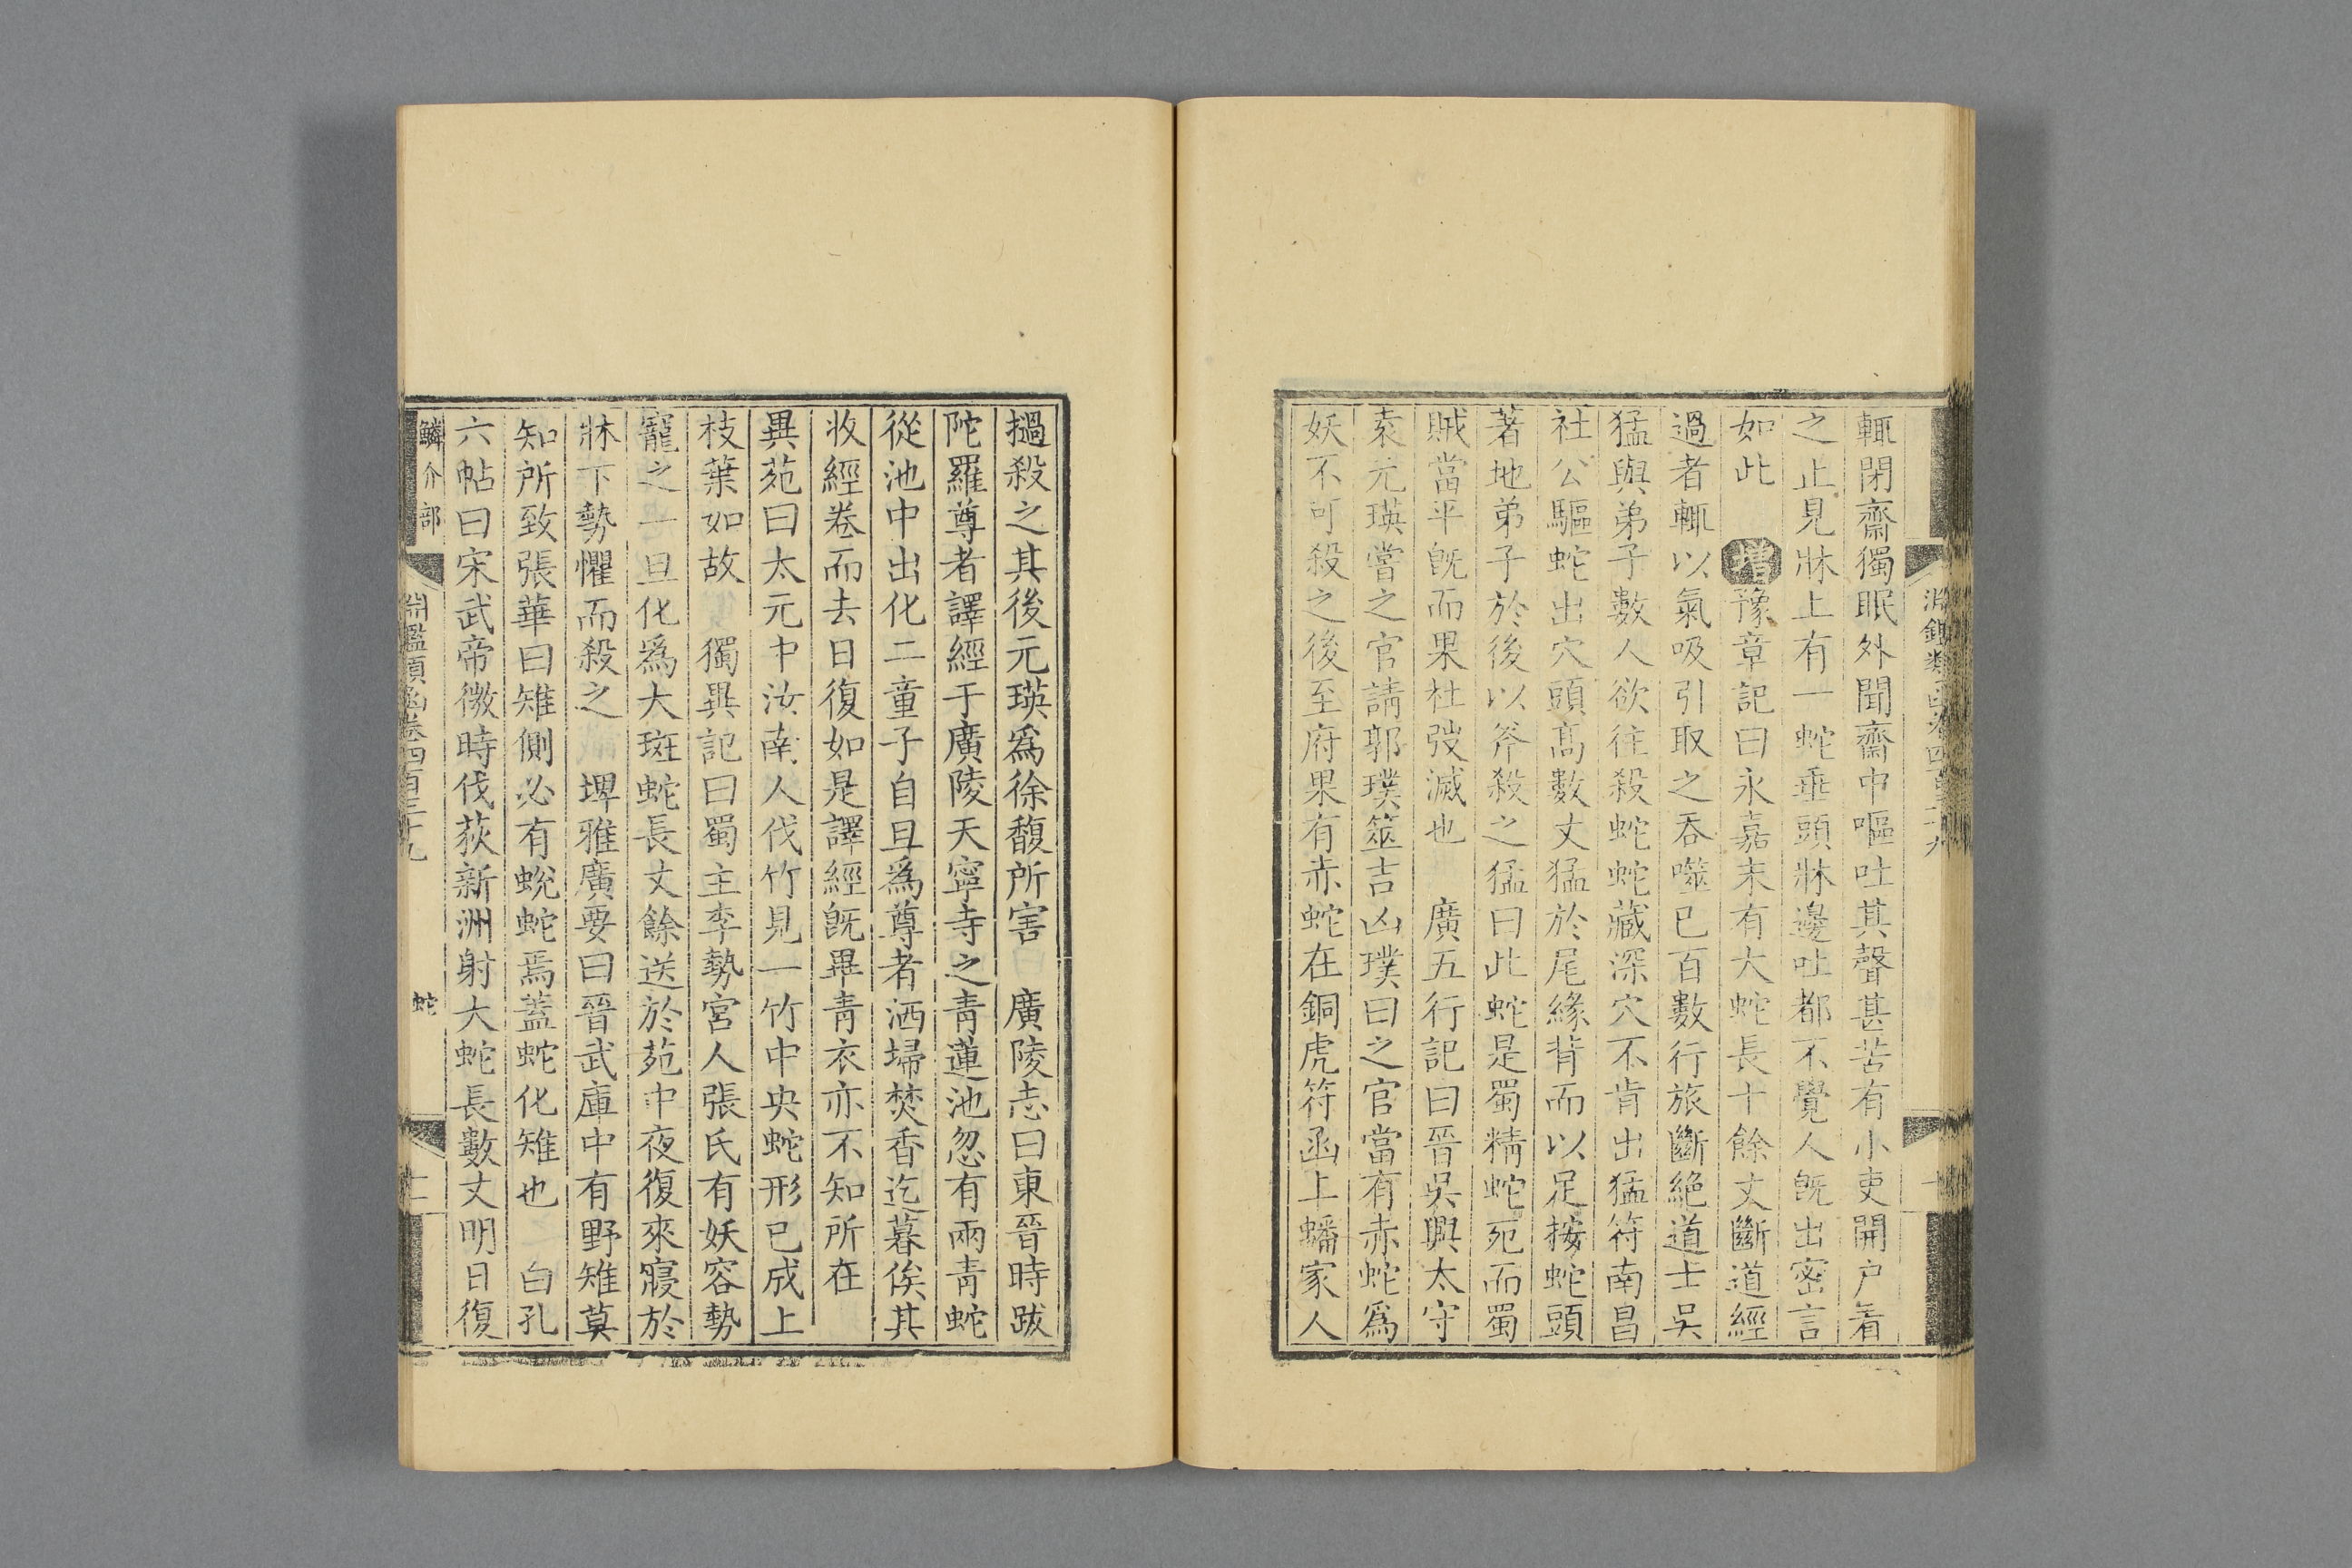 輒閉齋獨眠外聞齋中嘔吐其聲甚苦有小吏開户看
之止見牀上有一蛇垂頭牀邊吐都不覺人旣出密言
如此 增豫章記曰永嘉末有大蛇長十餘丈斷道經
過者輒以氣吸引取之吞噬已百數行旅斷絶道士吳
猛與弟子數人欲往殺蛇蛇藏深穴不肯出猛符南昌
社公驅蛇出穴頭髙數丈猛於尾緣背而以足按蛇頭
著地弟子於後以斧殺之猛曰此蛇是蜀精蛇死而蜀
賊當平旣而果杜弢滅也 廣五行記曰晉吳興太守
袁元瑛當之官請郭璞筮吉凶璞曰之官當有赤蛇爲
妖不可殺之後至府果有赤蛇在銅虎符函上蟠家人
撾殺之其後元瑛爲徐馥所害 廣陵志曰東晉時跋
陀羅尊者譯經于廣陵天寧寺之靑蓮池忽有兩靑蛇
從池中出化二童子自旦爲尊者洒埽焚香迄暮俟其
收經卷而去日復如是譯經旣畢靑衣亦不知所在
異苑曰太元中汝南人伐竹見一竹中央蛇形已成上
枝葉如故 獨異記曰蜀主李勢宮人張氏有妖容勢
寵之一旦化爲大斑蛇長丈餘送於苑中夜復來寢於
牀下勢懼而殺之 埤雅廣要曰晉武庫中有野雉莫
知所致張華曰雉側必有蛻蛇焉蓋蛇化雉也 白孔
六帖曰宋武帝微時伐荻新洲射大蛇長數丈明日復
鱗介部 淵鑑類函卷四百三十九 蛇